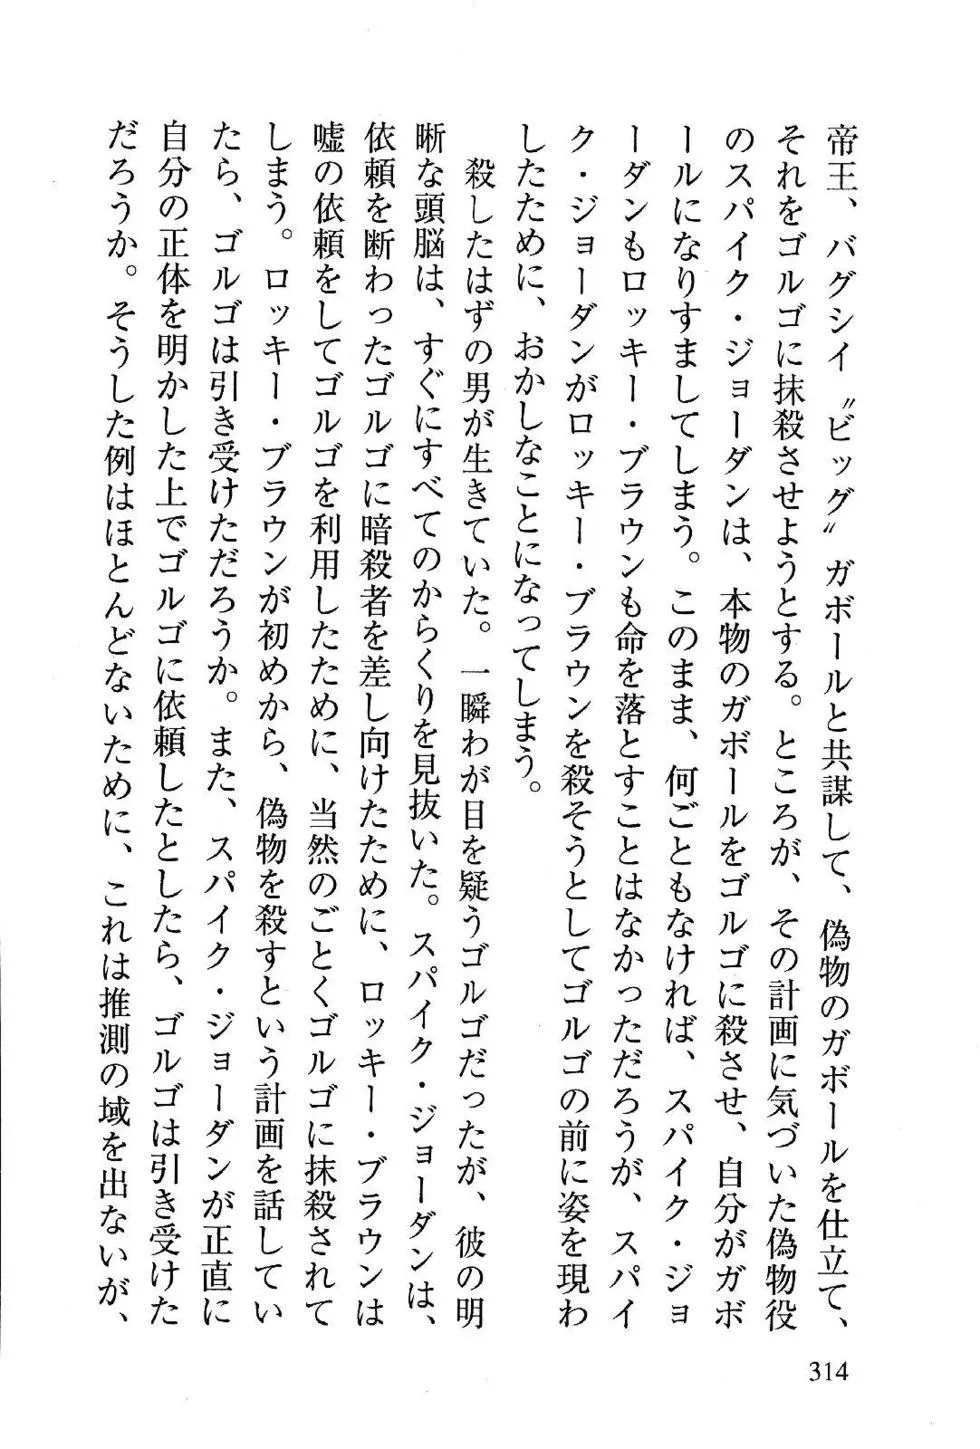 帝王、バグシイ〝ビッグ〟ガボールと共謀して、偽物のガボールを仕立て、
それをゴルゴに抹殺させようとする。ところが、その計画に気づいた偽物役
のスパイク・ジョーダンは、本物のガボールをゴルゴに殺させ、自分がガボ
ールになりすましてしまう。このまま、何ごともなければ、スパイク・ジョ
ーダンもロッキー・ブラウンも命を落とすことはなかっただろうが、スパイ
ク・ジョーダンがロッキー・ブラウンを殺そうとしてゴルゴの前に姿を現わ
したために、おかしなことになってしまう。
殺したはずの男が生きていた。一瞬わが目を疑うゴルゴだったが、彼の明
晰な頭脳は、すぐにすべてのからくりを見抜いた。スパイク・ジョーダンは、
依頼を断わったゴルゴに暗殺者を差し向けたために、ロッキー・ブラウンは
嘘の依頼をしてゴルゴを利用したために、当然のごとくゴルゴに抹殺されて
しまう。ロッキー・ブラウンが初めから、偽物を殺すという計画を話してい
たら、ゴルゴは引き受けただろうか。また、スパイク・ジョーダンが正直に
自分の正体を明かした上でゴルゴに依頼したとしたら、ゴルゴは引き受けた
だろうか。そうした例はほとんどないために、これは推測の域を出ないが、
314